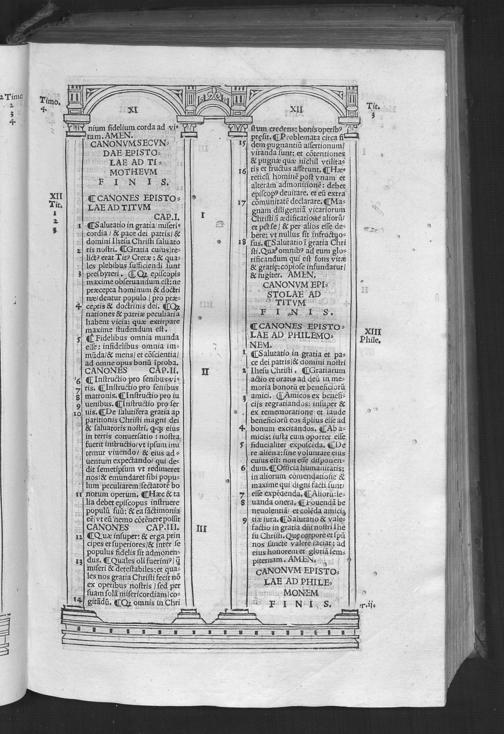 2 Timo
2
3
4
Timo.
4
XI
nium fidelium corda ad vi⸗
tam. AMEN.
CANONVM SECVN⸗
DAE EPISTO⸗
LAE AD TI⸗
MOTHEVM
F I N I S.
XII
Tit.
1
2
3
¶ CANONES EPISTO⸗
LAE AD TITVM
CAP.I.
1 ¶ Salutatio in gratia: miseri⸗
cordia: & pace dei patris: &
domini Ihesu Christi saluato
2 ris nostri. ¶ Gratia cuius: re⸗
les plebibus sufficiendi sunt
3 presbyteri. ¶ Qꝫ episcopis
maxime obseruandum est: ne
præcepta hominum & doctri
næ/ deatur populo: pro præ⸗
4 ceptis & doctrinis dei. ¶ Qꝫ
nationes & patriæ peculiaria
habent vicia: quæ extirpare
maxime studendum est.
5 ¶ Fidelibus omnia munda
esse: infidelibus omnia im⸗
múda/ & mens/ et cóscientia:
ad omne opus boni ĩproba.
CANONES CAP.II.
6 ¶ Instructio pro senibus vi⸗
7 ris. ¶ Instructio pro senibus
8 matronis. ¶ Instructio pro iu
9 uenibus. ¶ Instructio pro ser
10 uis. ¶ De salutifera gratia ap
paritionis Christi magni dei
& saluatoris nostri. qꝗ eius
in terris conuersatio: nostra
fuerit instructio: vt ipsum imi
temur viuendo/ & eius ad⸗
uentum expectando: qui de⸗
dit semetipsum vt redimeret
nos: & emundaret sibi popu⸗
lum peculiarem sectatoré bo
11 norum operum. ¶ Hæc & ta
lia debet episcopus instruere
populú suú: & ea sactimonia
eé: vt eú nemo cótenere possit
CANONES CAP.III.
12 ¶ Quæ insuper: & erga prin
cipes et superiores/ & inter se
populus fidelis sit admonen⸗
13 dus. ¶ Quales oli fuerimꝰ: ꝗ
miseri & detestabiles: et qua⸗
les nos gratia Christi fecit nó
ex operibus nostris: sed per
suam solá misericordiam: co⸗
14 gitádú. ¶ Qꝫ omnis in Chri
I
II
III
XII
stum credens: bonis operibꝰ
15 presit. ¶ Problemata circa fi
dem pugnantiú assertionum/
vitanda sunt: et cótentiones
& pugnæ quæ nichil vtilita⸗
16 tis et fructus afferunt. ¶ Hæ⸗
reticú hominé post vnam et
alteram admonitioné: debet
episcopꝰ deuitare. et eú extra
17 comunitaté declarare. ¶ Ma⸗
gnam diligentiá vicariorum
Christi ĩ ædificatióe alioru:
et per se/ & per alios esse de⸗
bere: vt nullus sit infructuo⸗
18 sus. ¶ Salutatio ĩ gratia Chri
sti. Quæ omnibꝰ ad eum glo⸗
rificandum qui est fons vitæ
& gratiæ: copiose infundatur/
& iugiter. AMEN.
CANONVM EPI⸗
STOLAE AD
TITVM
F I N I S.
¶ CANONES EPISTO⸗
LAE AD PHILEMO⸗
NEM.
1 ¶ Salutatio in gratia et pa⸗
ce dei patris: & domini nostri
2 Iesu Christi. ¶ Gratiarum
actio et oratio ad deú in me⸗
moria bonorú et beneficiorú
3 amici. ¶ Amicos ex benefi⸗
cijs regratiandos: insuper &
ex rememoratione et laude
beneficiorú eos apiius esse ad
4 bonum excitandos. ¶ Ab a⸗
micis: iusta cum oportet esse
5 fiducialiter exposceda. ¶ De
re aliena: sine voluntate eius
cuius est: non esse disponen⸗
6 dum. ¶ Officia humanitatis:
in aliorum cómendatióe &
maxime qui digni facti sunt:
7 esse expédenda. ¶ Alioru: le⸗
8 uanda onera. ¶ Fouendá be
neuolentiá: et coléda amici⸗
9 tiæ iura. ¶ Salutatio & vale⸗
factio in gratia dñi nostri Ihe
su Christi. Quæ corpore et spũ
nos iuncte valere faciat: ad
eius honorem et gloriá sem⸗
piternam. AMEN.
CANONVM EPISTO⸗
LAE AD PHILE⸗
MONEM
F I N I S.
Tit.
3
XIII
Phile.
r.ij.